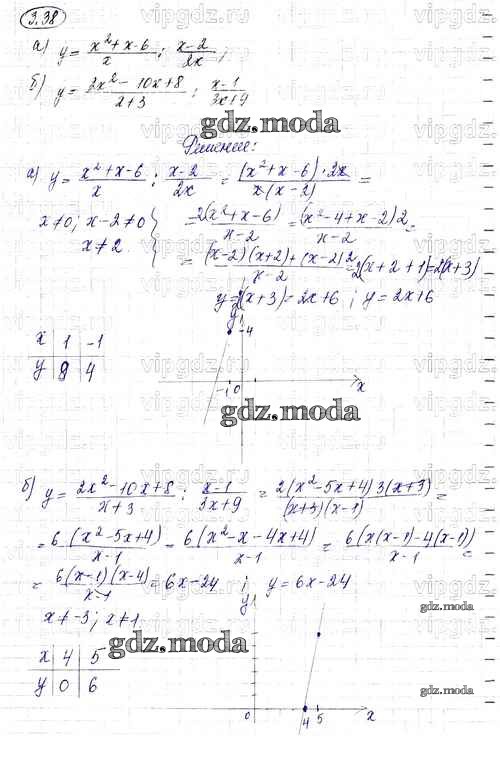 3.38
а) y = (x² + x - 6)/x : (x-2)/2x ;
б) y = (2x² - 10x + 8)/(x+3) : (x-1)/(3x+9)
gdz.moda
Решение:
а) y = (x² + x - 6)/x : (x-2)/2x = ((x² + x - 6) · 2x)/(x(x-2)) =
x≠0; x-2≠0 } = 2(x² + x - 6)/(x-2) = (x² - 4 + x - 2)2/(x-2) =
x≠2 = ((x-2)(x+2) + (x-2)2)/(x-2) = 2(x+2+1) = 2(x+3)
y = 2(x+3) = 2x+6 ; y = 2x+6
x | 1 | -1
y | 8 | 4
y
4
-1 0 x
gdz.moda
б) y = (2x² - 10x + 8)/(x+3) : (x-1)/(3x+9) = (2(x² - 5x + 4) 3(x+3))/((x+3)(x-1)) =
= 6(x² - 5x + 4)/(x-1) = 6(x² - x - 4x + 4)/(x-1) = 6(x(x-1) - 4(x-1))/(x-1) =
= 6(x-1)(x-4)/(x-1) = 6x-24 ; y = 6x-24
x≠-3; x≠1
y
gdz.moda
gdz.moda
x | 4 | 5
y | 0 | 6
gdz.moda
0 4 5 x